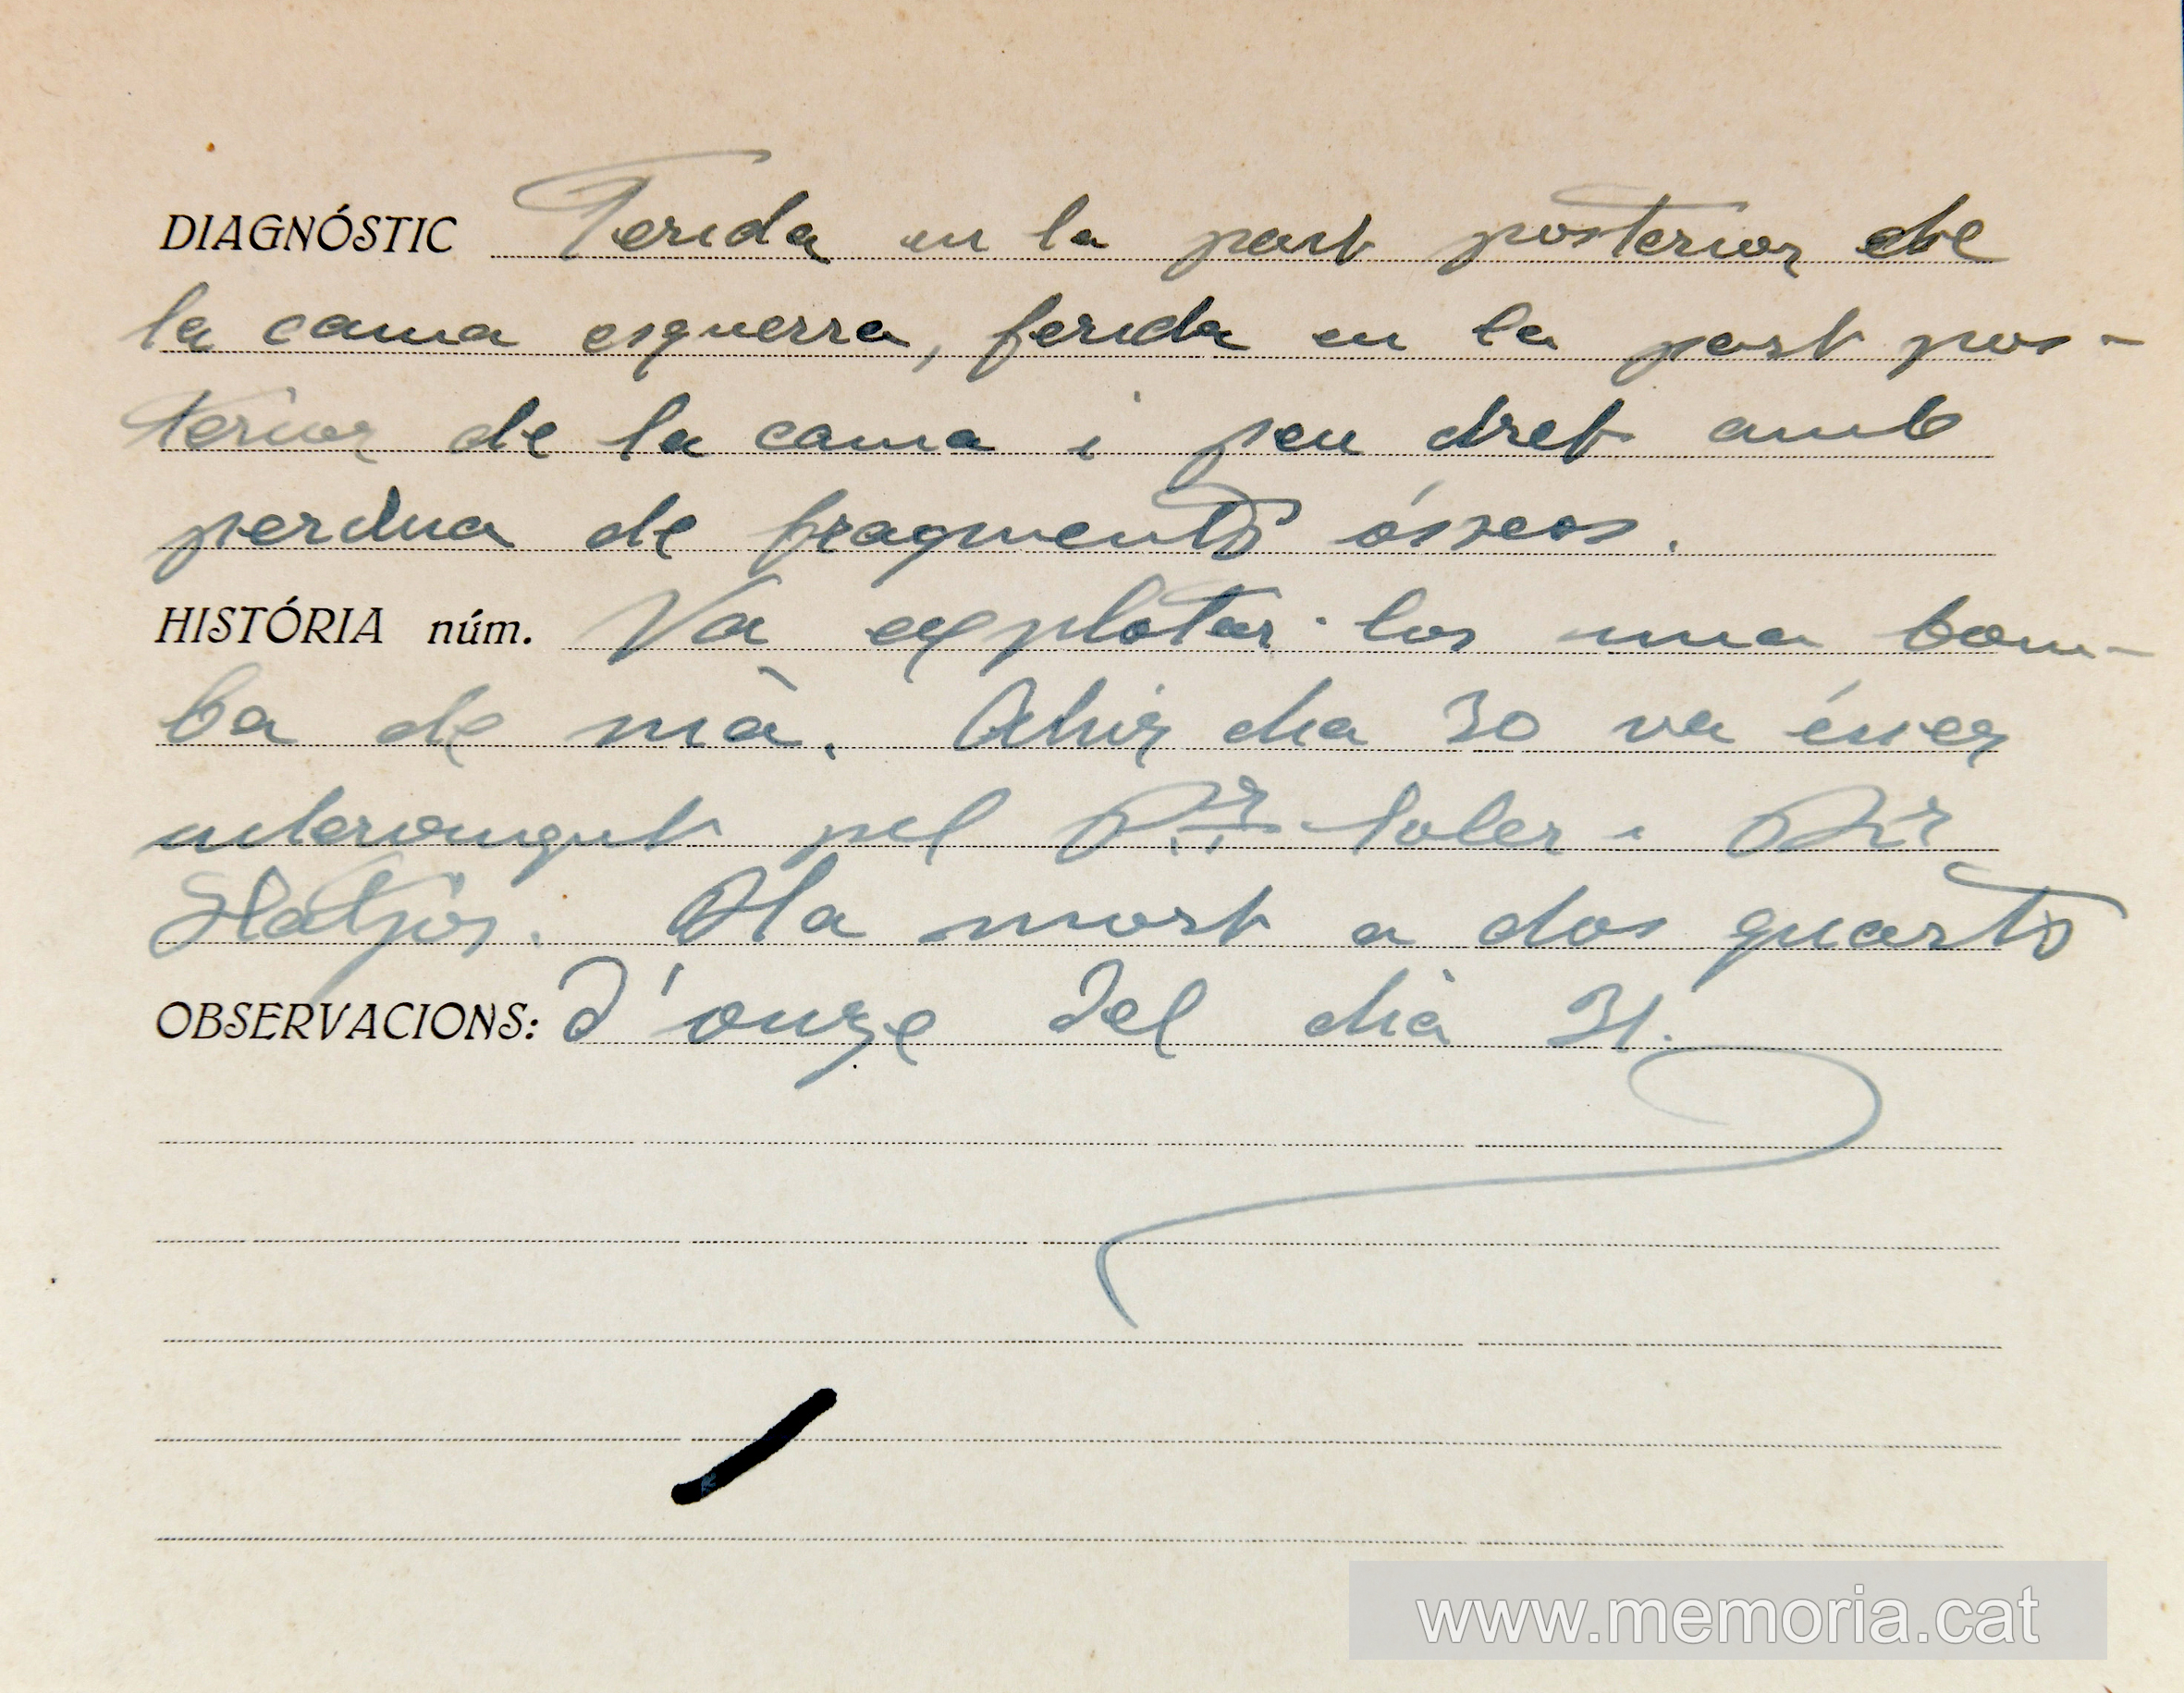 DIAGNÓSTIC Ferida en la part posterior de
la cama esquerra, ferida en la part pos-
terior de la cama i peu dret amb
perdua de fragments ósseos.
HISTÓRIA núm. Va explotar-los una bom-
ba de mà. Ahir dia 30 va ésser
intervingut pel Dr. Soler i Dr.
Ha mort a dos quarts
OBSERVACIONS: d'onze del dia 31.
www.memoria.cat